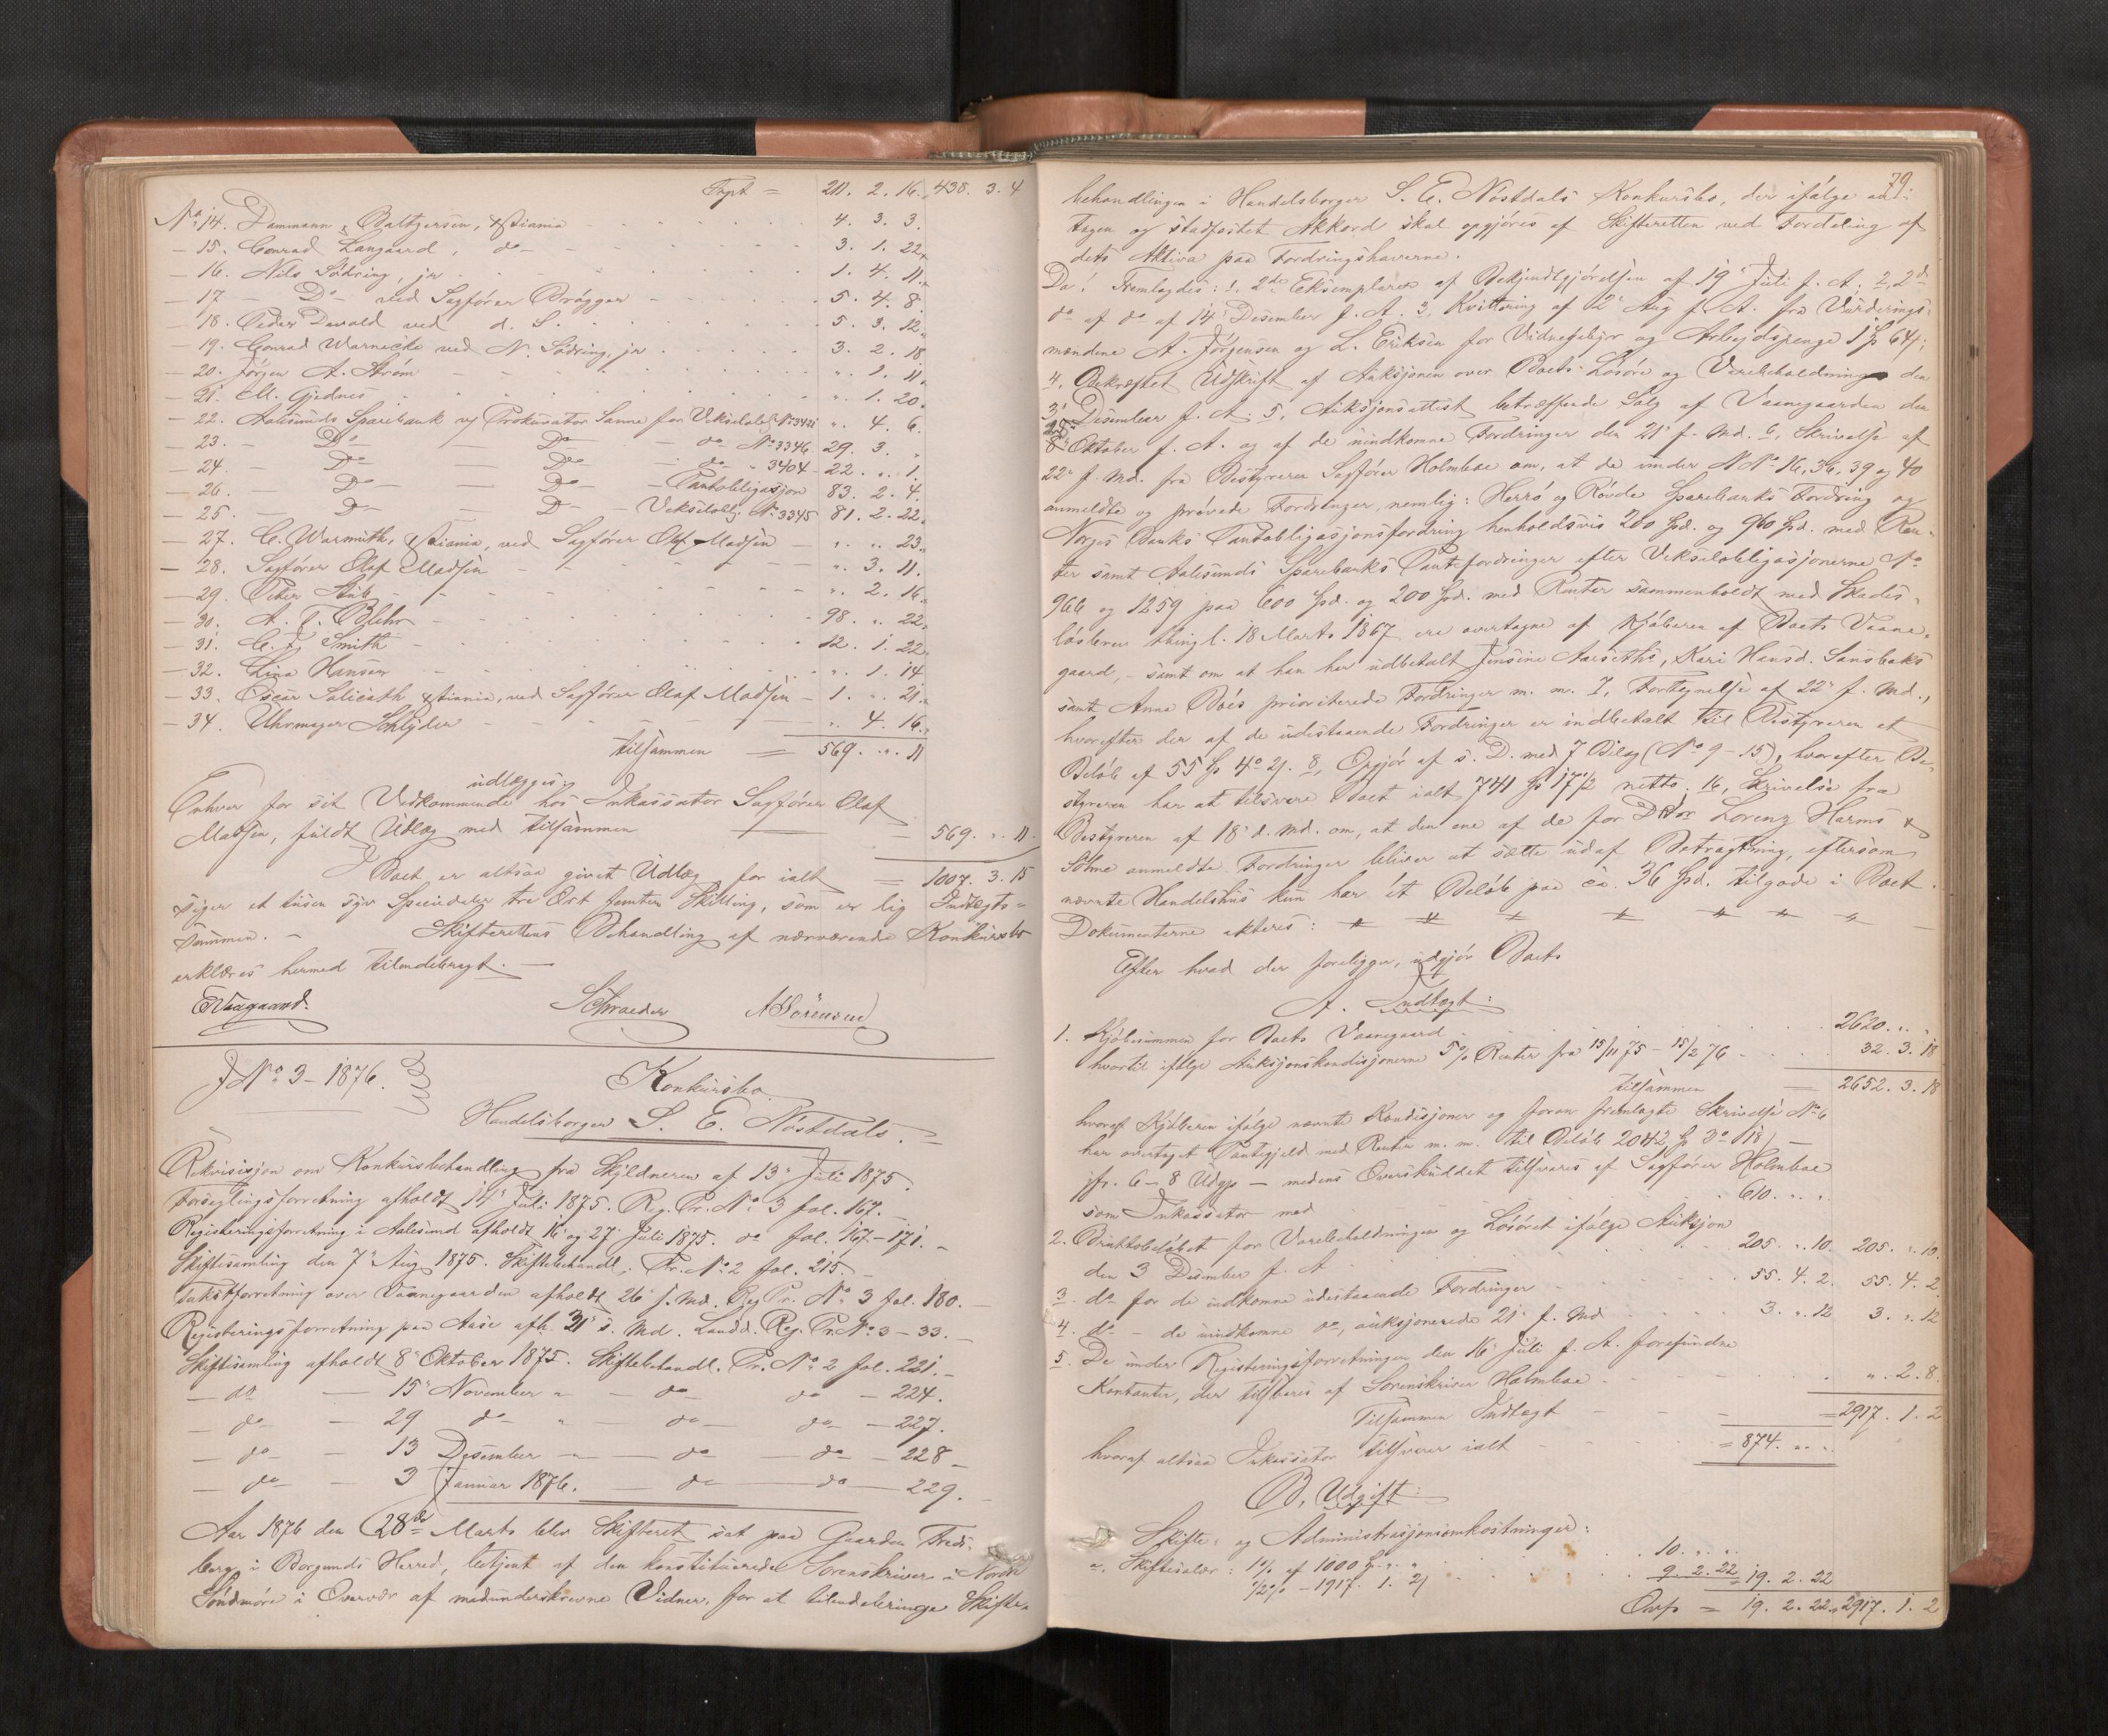 Trpt = 211. 2. 16. 438. 3. 4
No 14. Dammann & Baltzersen, Xstiania - 4. 3. 3.
- 15. Conrad Langaard, do - 3. 1. 22.
- 16. Nils Södring, jr - 1. 4. 11.
- 17 - Do - ved Sagfører Brögger - 5. 4. 8.
- 18. Peder Devold ved d. S. - 5. 3. 12.
- 19. Conrad Warnecke ved N. Södring, jr - 3. 2. 18
- 20. Jörgen A. Ström - " 1. 11.
- 21. M. Gjednes " 1. 20.
- 22. Aalesunds Sparebank v/ Prokurator Sanne for Vekselobl. No " 4. 6.
- 23. - Do - Do - do No 3346 29. 3. "
- 24. - Do - Do - do - " 3404 - 22. " 1.
- 26. - Do - Do - Pantobligasjon 83. 2. 4.
- 25. - Do - Do - Vekselobl. No 3345 81. 2. 22.
- 27. C. Warmuth, Xstiania, ved Sagfører Olaf Madsen - " " 23.
- 28. Sagfører Olaf Madsen - " 3. 11.
- 29. Peter Stub - " 2. 16.
- 30. A. T. Blehr - 98. " 22.
- 31. C. F. Smith - 12. 1. 22.
- 32. Lina Hansen - " 1. 14
- 33. Oscar Salicath, Xstiania, ved Sagfører Olaf Madsen - 1. " 21.
- 34. Uhrmager Schlyder - " 4. 16.
tilsammen = 569. " 11
udlægges
Enhver for sit Vedkommende hos Inkassator Sagfører Olaf
Madsen, fuldt Udlæg med tilsammen - 569. " 11.
I Boet er altsaa givet Udlæg for ialt = 1007. 3. 15
siger et tusen syv Speciedaler tre Ort femten Skilling, som er lig Indtægts-
summen. - Skifterettens Behandling af nærværende Konkursbo
erklæres hermed tilendebragt. -
E Vaagaard. Schrøeder A Sörensen
J No 3 - 1876. Konkursbo
Handelsborger S. E. Nöstdals.
Rekvisisjon om Konkursbehandling fra Skyldneren af 13de Juli 1875.
Forseglingsforretning afholdt 14de Juli 1875. Reg. Pr. No 3 fol. 167. -
Registeringsforretning i Aalesund afholdt 16 og 27 Juli 1875. do fol. 167 - 171. -
Skiftesamling den 7de Aug 1875. Skiftebehandl. Pr. No 2 fol. 215. -
Takstforretning over Vaanegaarden afholdt 26 s. Md. Reg Pr. No 3 fol. 180. -
Registeringsforretning paa Aase afh. 31 s. Md. Landd. Reg. Pr. No 3 - 33. -
Skiftesamling afholdt 8de Oktober 1875. Skiftebehandl. Pr. No 2 fol. 221. -
- do - 15de November " - do do - 224.
- do - 29 do " - do - do - 227.
- do - 13 Desember - do - do - 228 -
- do - 3 Januar 1876. - do - do - 229. -
Aar 1876 den 28de Marts blev Skifteret sat paa Gaarden Freds-
berg i Borgunds Herred, betjent af den konstituerede Sorenskriver i Nordre
Söndmöre i Overvær af medunderskrevne Vidner, for at tilendebringe Skifte-
79
behandlingen i Handelsborger S. E. Nöstdals Konkursbo, der ifølge an-
tagen og stadfæstet Akkord skal opgjöres af Skifteretten ved Fordeling af
dets Aktiva paa Fordringshaverne.
Da! Fremlagdes: 1, 2de Eksemplarer af Bekjendtgjörelsen af 19de Juli f. A. 2, 2de
do af do af 14de Desember f. A. 3, Kvittering af 2de Aug f. A. fra Vurderings-
mændene A. Jörgensen og L. Eriksen for Vidnegebyr og Arbejdspenge 1 Sp 64;
4, Bekræftet Udskrift af Auksjonen over Boets Lösöre og Varebeholdning den
3de Desember f. A. 5, Auksjonsattest betræffende Salg af Vaanegaarden den
Oktober f. A. og af de uindkomne Fordringer den 21de f. Md. 6, Skrivelse af
22de f. Md. fra Bestyreren Sagfører Holmboe om, at de under N No 16, 36, 39 og 40
anmeldte og prövede Fordringer, nemlig: Herrö og Rövde Sparebanks Fordring og
Norges Banks Pantobligasjonsfordring henholdsvis 200 Spd. og 960 Spd. med Ren-
ter samt Aalesunds Sparebanks Pantefordringer efter Vekselobligasjonerne No
966 og 1259 paa 600 Spd. og 200 Spd. med Renter sammenholdt med Skades-
lösbrev thingl. 18 Marts 1867 ere overtagne af Kjöberen af Boets Vaane-
gaard, - samt om at han har udbetalt Jensine Aarseths, Kari Hansd. Sansbaks
samt Anna Boes prioriterede Fordringer m. m. 7, Fortegnelse af 22de f. Md.,
hvorefter der af de udestaaende Fordringer er indbetalt til Bestyreren et
Belöb af 55 Sp 4o 2/. 8, Opgjör af s. D. med 7 Bilag (No 9 - 15), hvorefter Be-
styreren har at tilsvare Boet ialt 741 Sp 17 1/2 netto. 16, Skrivelse fra
Bestyreren af 18de d. Md. om, at den ene af de for D'Hrr Lorenz Harms &
Söhne anmeldte Fordringer bliver at sætte ud af Betragtning, eftersom
nævnte Handelshus kun har et Belöb paa ca. 36 Spd. tilgode i Boet.
Dokumenterne akteres:
Efter hvad der foreligger, udgjör Boets
A. Indtægt:
1. Kjöbesummen for Boets Vaanegaard 2620. " "
hvortil ifølge Auksjonskondisjonerne 5% Renter fra 15/11 75 - 15/2 76 32. 3. 18
tilsammen = 2652. 3. 18
hvoraf Kjöberen ifølge nævnte Kondisjoner og foran fremlagte Skrivelse No 6
har overtaget Pantegjeld med Renter m. m. til Belöb 2042 Sp 3o 18/ -
jfr. 6 - 8 Udgs - medens Overskuddet tilsvares af Sagfører Holmboe
som Inkassator med 610. " "
2. Bruttobelöbet for Varebeholdningen og Lösöret ifølge Auksjon
den 3 Desember f. A. 205. " 10. 205. " 10.
3. do for de indkomne udestaaende Fordringer 55. 4. 2. 55. 4. 2
4. do - de uindkomne do, auksjonerede 21de f. Md 3. " 12 3. " 12
5. De under Registeringsforretningen den 16de Juli f. A. forefundne
Kontanter, der tilsvares af Sorenskriver Holmboe " 2. 8.
Tilsammen Indtægt = 2917. 1. 2
hvoraf altsaa Inkassator tilsvarer ialt = 874. " "
B. Udgift:
Skifte- og Administrasjonsomkostninger:
a. Skiftesalær: 1% af 1000 Sp. " " 10. " "
1/2% - 1917. 1. 2/ 9. 2. 22 = 19. 2. 22
Ovfs = 19. 2. 22. 2917. 1. 2